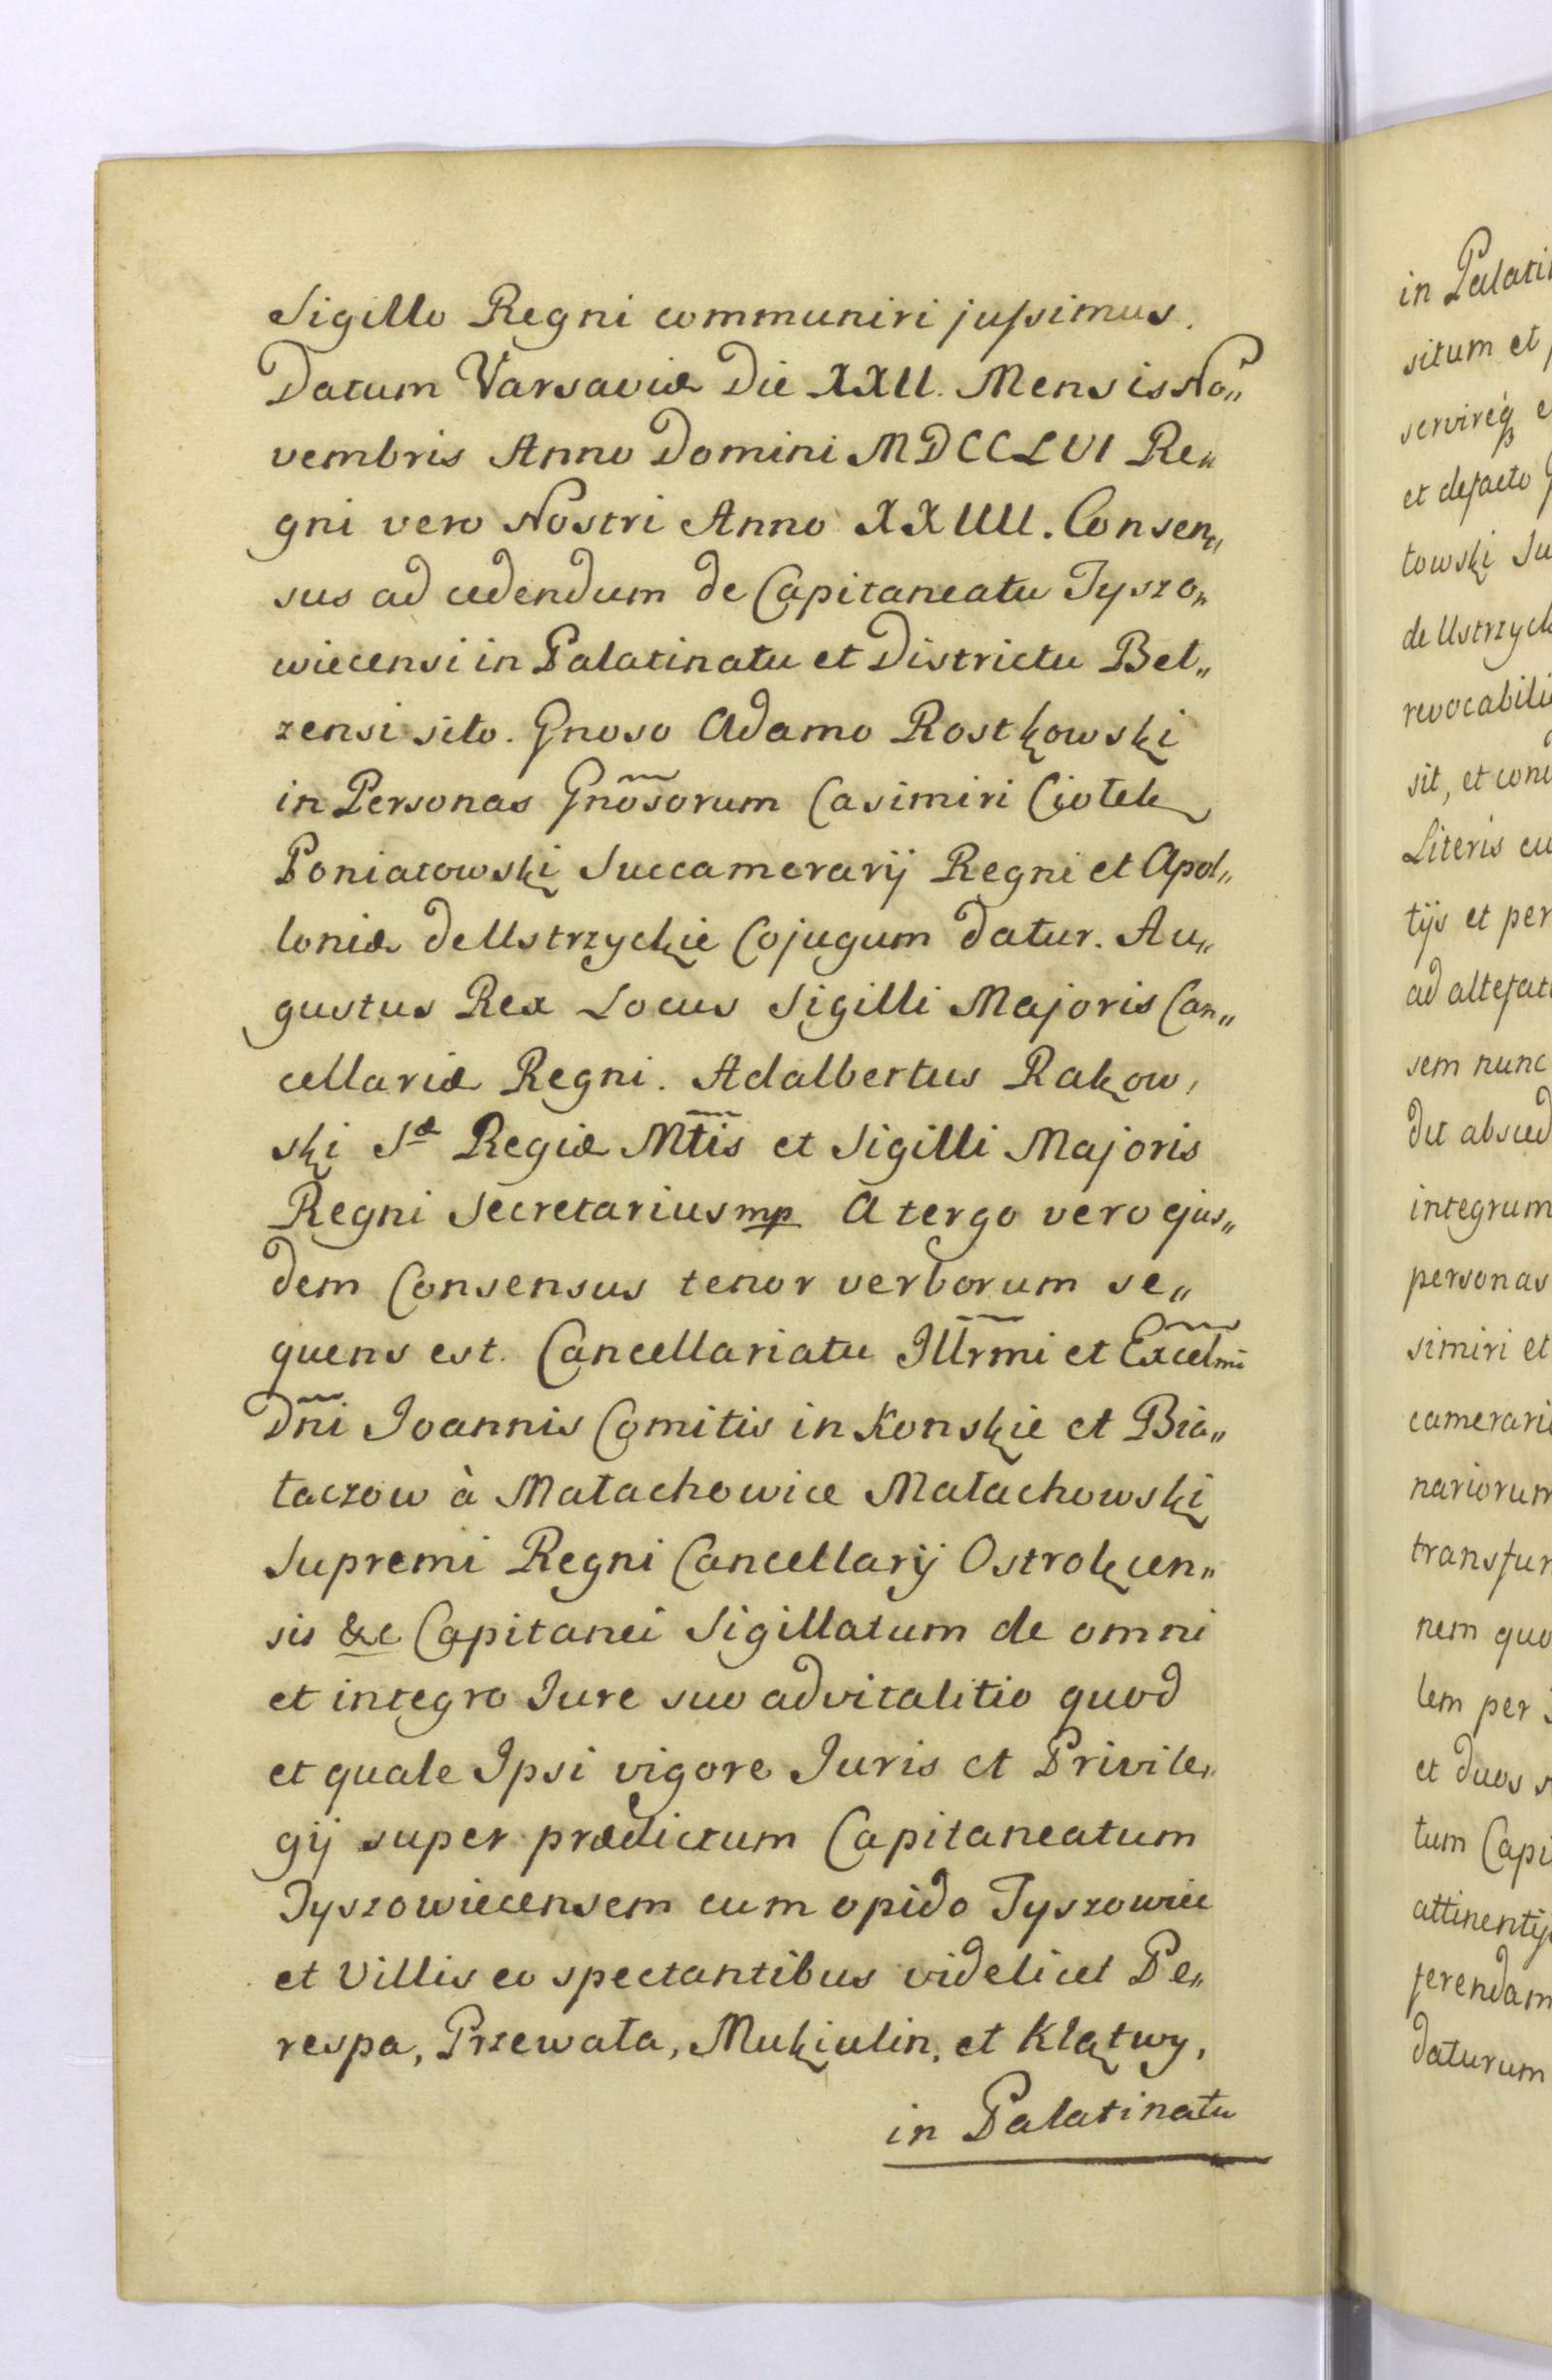 Sigillo Regni communiri jussimus.
Datum Varsaviæ Die XXII. Mensis No„
vembris Anno Domini MDCCLVI Re„
gni vero Nostri Anno XXIIII. Consen„
sus ad cedendum de Capitaneatu Tyszo„
wiecensi in Palatinatu et Districtu Bel„
zensi sito. Gnoso Adamo Rostkowski
in Personas Gnõsorum Casimiri Ciołek
Poniatowski Succamerarij Regni et Apol„
loniæ de Ustrzyckie Cojugum datur. Au„
gustus Rex Locus Sigilli Majoris Can„
cellariæ Regni. Adalbertus Rakow,
ski Sæ Regiæ Mtis et Sigilli Majoris
Regni Secretarius mp A tergo vero ejus„
dem Consensus tenor verborum se„
quens est. Cancellariatu Illrmi et Excelmi
Dni Joannis Comitis in Konskie et Bia„
łaczow à Małachowice Małachowski
Supremi Regni Cancellarij Ostrołęcen„
sis &c Capitanei Sigillatum de omni
et integro Jure suo advitalitio quod
et quale Ipsi vigore Juris et Privile„
gij super prædictum Capitaneatum
Tyszowiecensem cum opido Tyszowiec
et Villis eo spectantibus videlicet Pe„
respa, Przewała, Mukiulin, et Klątwy,
in Palatinatu
in Palati
situm et
servireq e
et defacto
towski Ju
de Ustrzyck
revocabili
sit, et con
Literis cu
tijs et per
ad altefat
sem nunc
de absced
integrum
personas
simiri et
camerari
nariorum
transfun
nem quo
lem per
et duos
tum Capi
attinentij
ferendam
daturum